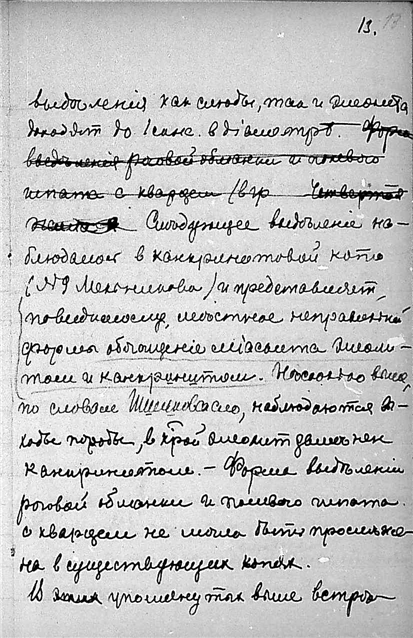 13. 13
выделенія как слюды, так и элеолита
доходят до 1 санж. в діаметре. Форма
выделенія роговой обманки и полевого
шпата с кварцем (
Следующее выделеніе на-
блюдается в канкринитовой копи
(№9 Мельникова) и представляет,
повидимому, местное неправильной
формы обогащеніе міаскита элеоли-
том и канкринитом. Несколько выше,
по словам наблюдаются вы-
ходы породы, в крой элеолит заменен
канкринитом. – Форма выделеній
роговой обманки и полевого шпата
с кварцем не могла быть прослеже-
на в существующих копях.
В упомянутых выше встреч-